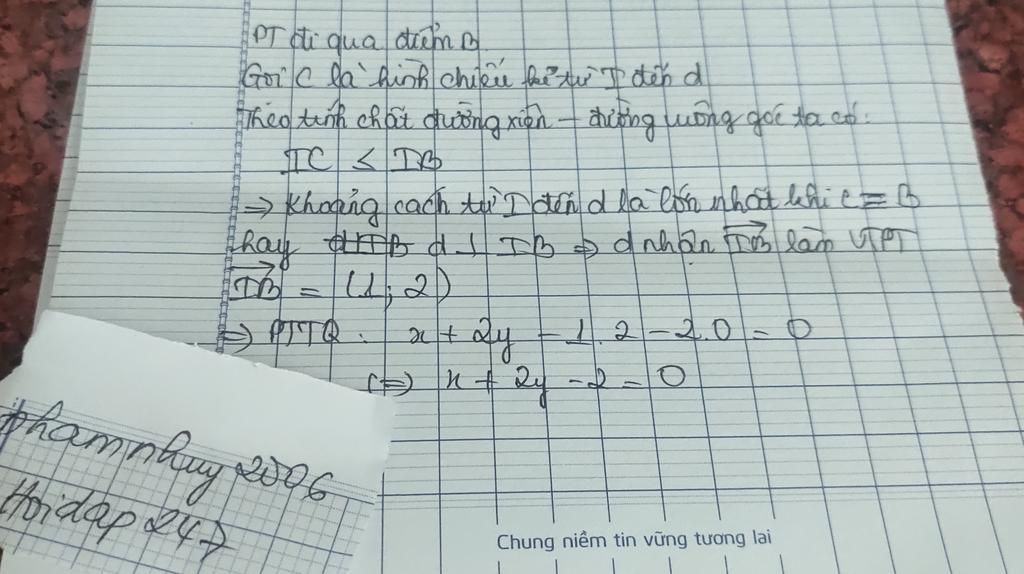 PT đi qua điểm B
Gọi C là hình chiếu kẻ từ I đến d
Theo tính chất đường xiên - đường vuông góc ta có:
IC ≤ IB
⇒ Khoảng cách từ I đến d là lớn nhất khi C ≡ B
hay d ⊥ IB ⇒ d nhận \overrightarrow{IB} làm VTPT
\overrightarrow{IB} = (1; 2)
⇒ PTTQ: x + 2y - 1.2 - 2.0 = 0
⇔ x + 2y - 2 = 0
phamnhuy2006
Hoidap247
Chung niềm tin vững tương lai